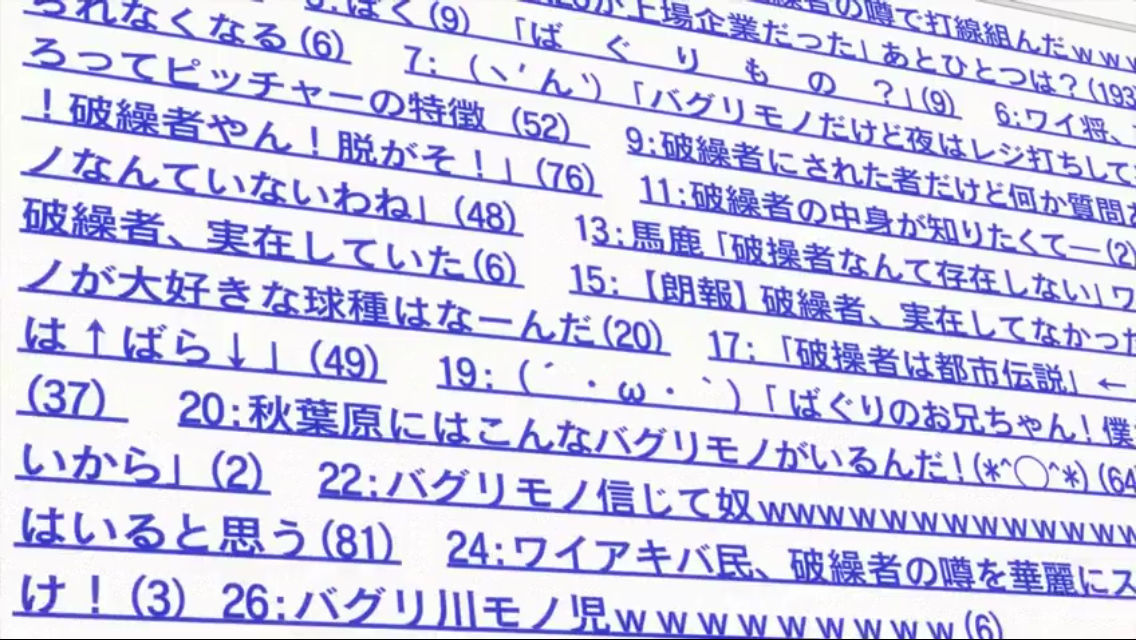 れなくなる(6)　8:ばく(9)　「ば　ぐ　り　も　の　？」(9)　6:ワイ将、
ろってピッチャーの特徴 (52)　7:（ヽ´ん`）「バグリモノだけど夜はレジ打ちして
！破繰者やん！脱がそ！」(76)　9:破繰者にされた者だけど何か質問
ノなんていないわね」(48)　11:破繰者の中身が知りたくて―(2)
破繰者、実在していた(6)　13:馬鹿「破操者なんて存在しない」ワ
ノが大好きな球種はなーんだ(20)　15:【朗報】破繰者、実在してなかった
は↑ばら↓」(49)　17:「破操者は都市伝説」←
(37)　19:(´・ω・`)「ばぐりのお兄ちゃん！僕
20:秋葉原にはこんなバグリモノがいるんだ！(*^◯^*)(64
いから」(2)　22:バグリモノ信じて奴ｗｗｗｗｗｗｗｗｗｗｗｗｗ
はいると思う(81)　24:ワイアキバ民、破繰者の噂を華麗にス
け！(3)　26:バグリ川モノ児ｗｗｗｗｗｗｗｗｗ(6)
上場企業だった」あとひとつは？(193
者の噂で打線組んだｗｗｗ